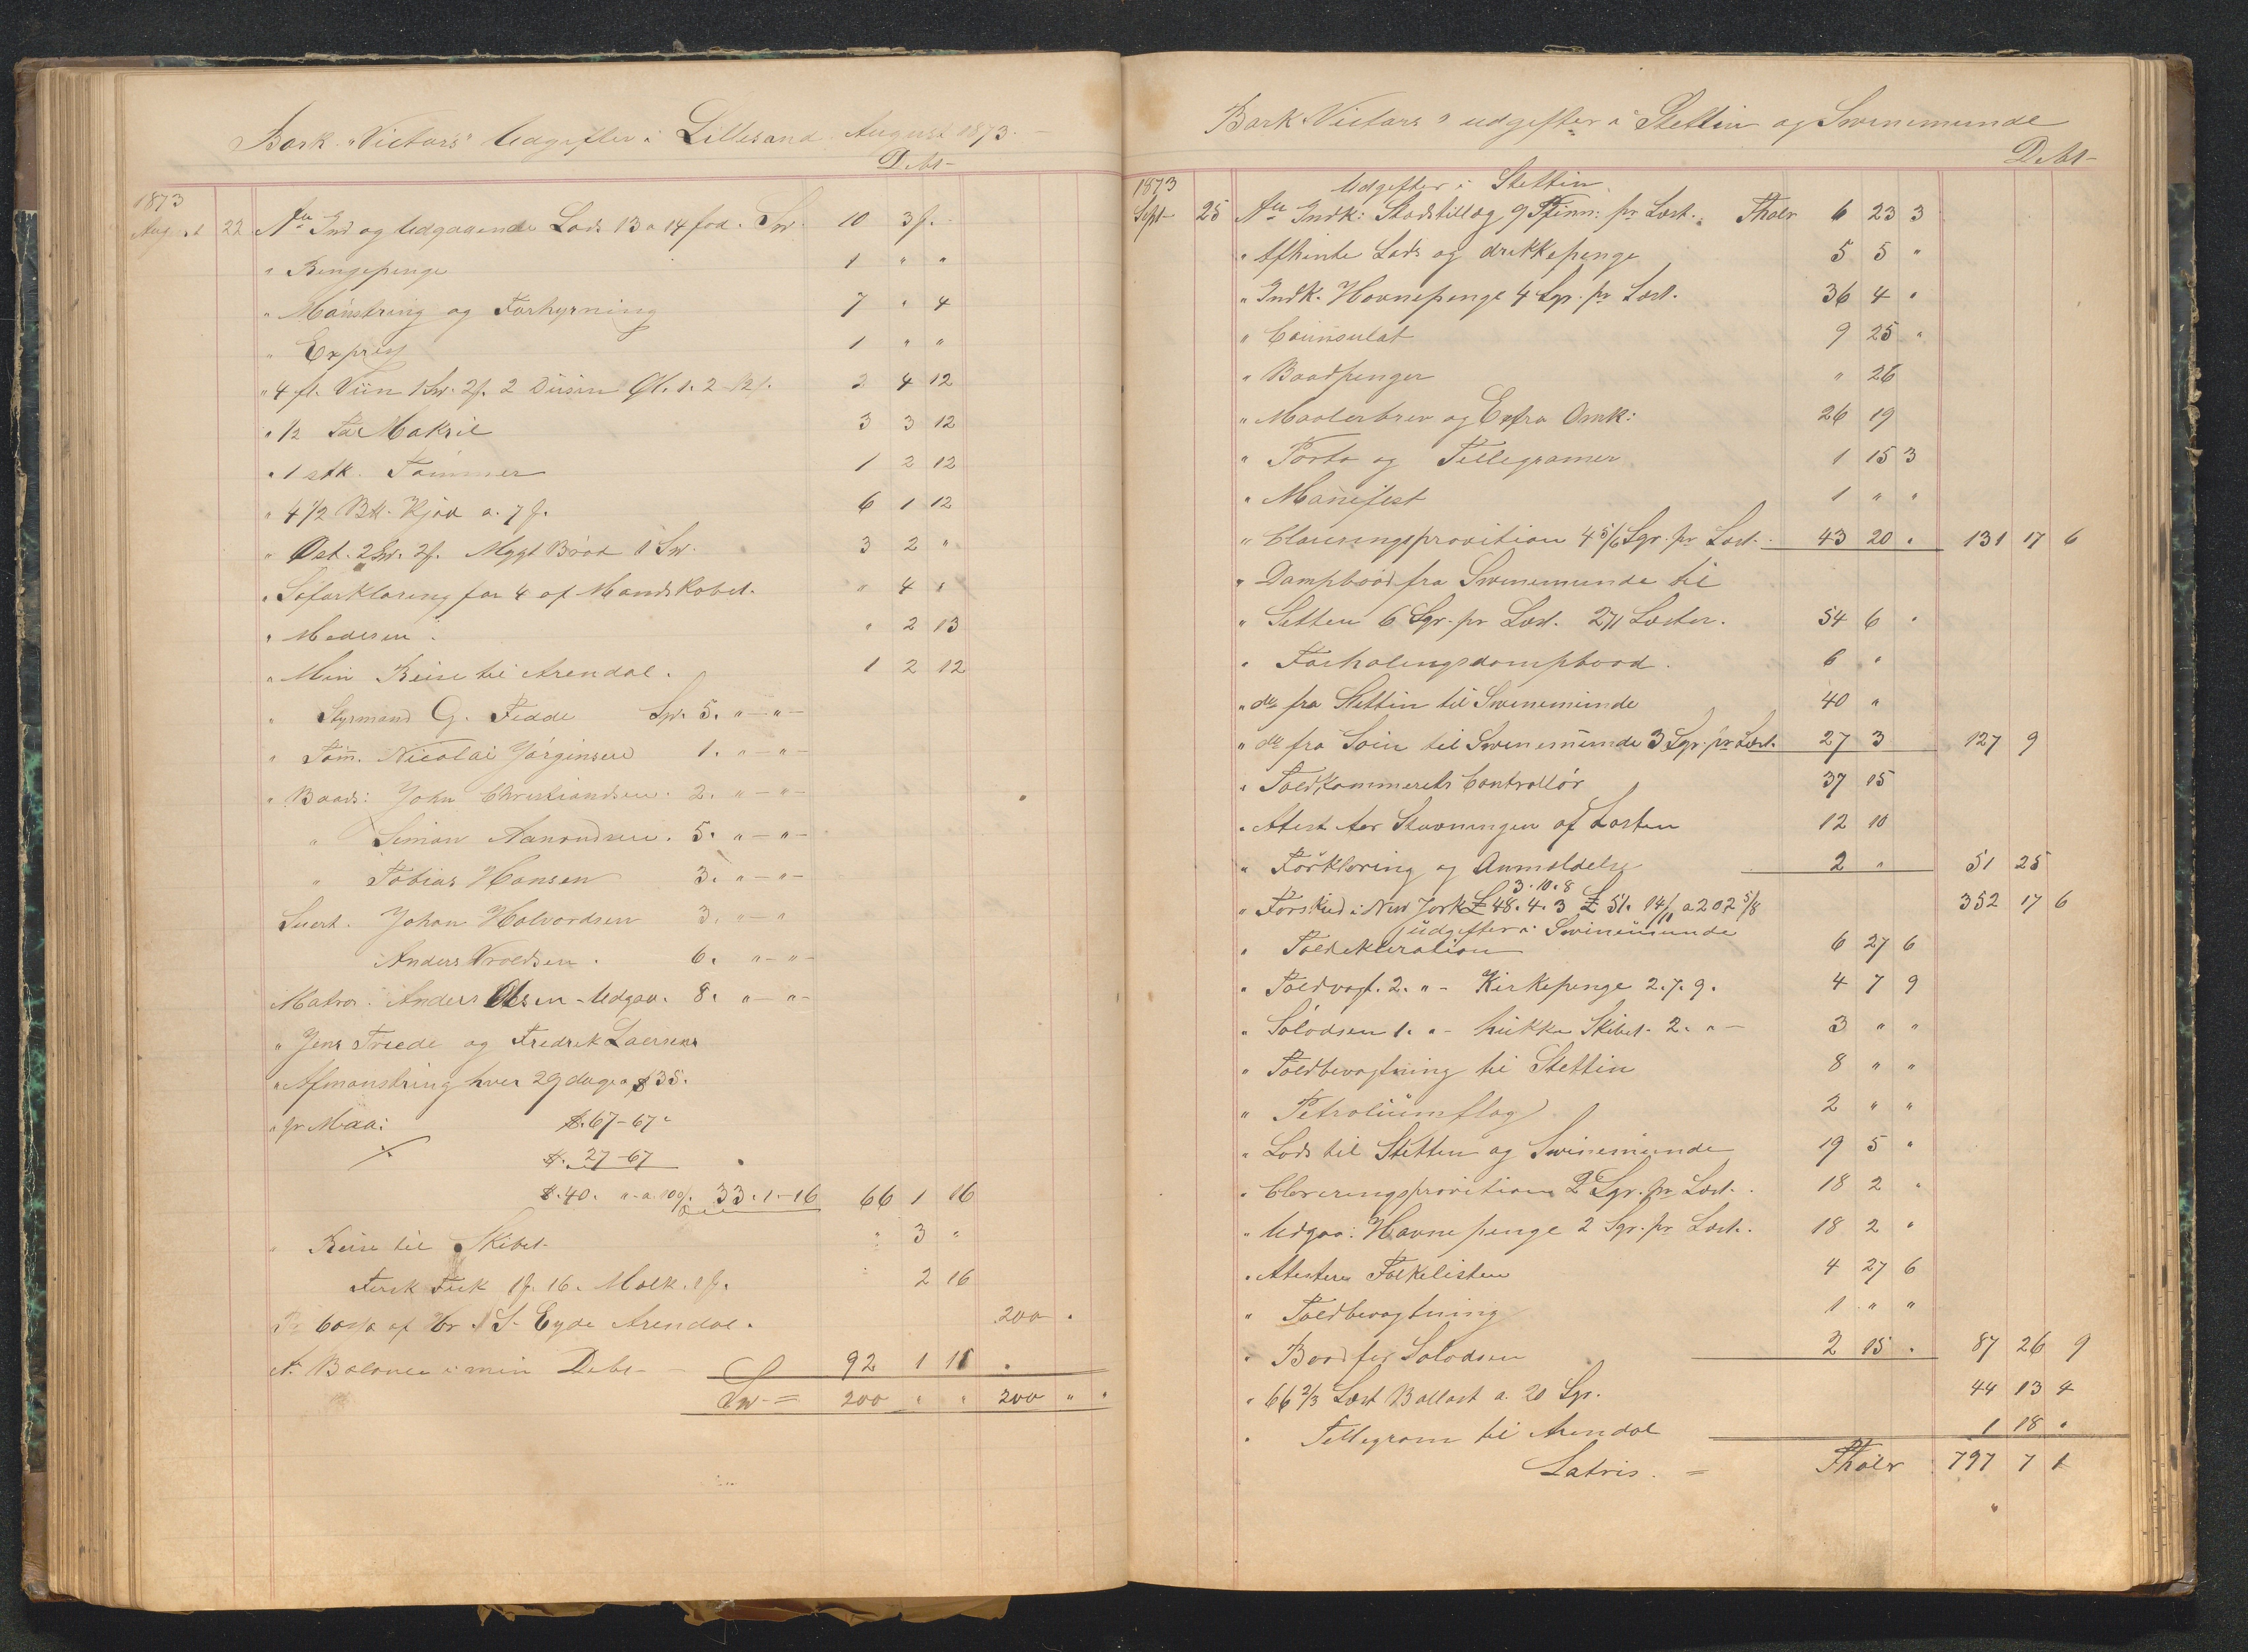 Bark "Victors" Udgifter i Lillesand August 1873.
Debt
1873
August 22 An Ind og Udgaaende Lods 13 a 14 fod. Spd. 10 3 f.
" Ringepenge 1 " "
" Mönstring og Forhyrning 7 " 4
" Expres 1 " "
" 4 fl. Viin 1 Spd. 2 f. 2 Dusin Øl. 1. 2 - 12 f. 2 4 12
" 1/2 Tde Makril 3 3 12
" 1 stk. Tömmer 1 2 12
" 4 1/2 B℔. Kjöd a. 7 f. 6 1 12
" Ost. 2 Spd. 2 f. Mygt Bröd 1 Spd. 3 2 "
" Söforklaring for 4 af Mandskabet. " 4 "
" Medesin. " 2 13
" Min Reise til Arendal. 1 2 12
" Styrmand G. Fedde Spd. 5. " — " —
" Töm. Nicolai Jörginsen 1. " — " —
" Baads: John Christiandsen. 2. " — " —
" Simon Aanondsen. 5. " — " —
" Tobias Hansen 3. " — " —
Suert. Johan Halvordsen 3. " — "
Anders Wroldsen. 6. " — " —
Matros. Anders Olsen - Udgaa. 8. " — " —
" Jens Treede og Fredrik Laersens
" Afmönstring hver 29 dage a $ 35.
" pr Maa: $. 67 - 67 "
$. 27 - 67
$. 40. " a. 100 f. 33. 1 - 16 66 1 16
" Reise til Skibet " 3 "
Fersk Fisk 1 f. 16. Melk. 1 f. " 2 16
Pr Cassa af Hr S. Eyde Arendal. 200 "
An Balance i min Debt 92 1 11
Spd = 200 " " 200 " "
Bark "Victors" udgifter i Stettin og Swinemunde
Debt
1873
Udgifter i Stettin
Sept 25 An Indk: Stadstillæg 9 Pfinn: pr Læst. Thalr 6 23 3
" Afhente Lods og drikkepenge 5 5 "
" Indk. Havnepenge 4 Sgr. pr Læst. 36 4 "
" Counsulat 9 25 "
" Baadpenger " 26
" Maalerbrev og Extra Omk: 26 19
" Porto og Tellegramer 1 15 3
" Manifest 1 " "
" Clareringsprovition 4 5/6 Sgr. pr Læst. 43 20 " 131 17 6
" Dampbaad fra Swinemunde til
" Setten 6 Sgr. pr Læst. 271 Læster. 54 6 "
" Forhalingsdampbaad. 6 "
" do fra Stettin til Swinemunde 40 "
" do fra Soin til Swinemunde 3 Sgr. pr Læst. 27 3 127 9
" Toldkammerets Controllör 37 15
" Atest for Stuvningen af Lasten 12 10
" Forklaring og Anmeldelse 2 " 51 25
3. 10. 8
" Forskud i New York £ 48. 4. 3 £ 51. 14/11 a 202 5/8 352 17 6
udgifter i Swinemunde
" Toldekleration 6 27 6
" Toldvagt. 2. " - Kirkepenge 2. 7. 9. 4 7 9
" Sölodsen 1. " - lukke Skibet. 2. " — 3 " "
" Toldbevogtning til Stettin 8 " "
" Petroliumflag 2 " "
" Lods til Stetten og Swinemunde 19 5 "
" Clareringsprovition 2 Sgr. pr Læst. 18 2 "
" Udgaa: Havnepenge 2 Sgr. pr Læst. 18 2 "
" Atestere Folkelisten 4 27 6
" Toldbevogtning 1 " "
" Baad for Solodsen 2 15 " 87 26 9
" 66 2/3 Læst Ballast a. 20 Sgr. 44 13 4
" Tellegram til Arendal 1 18 "
Latris. = Thalr 797 7 1